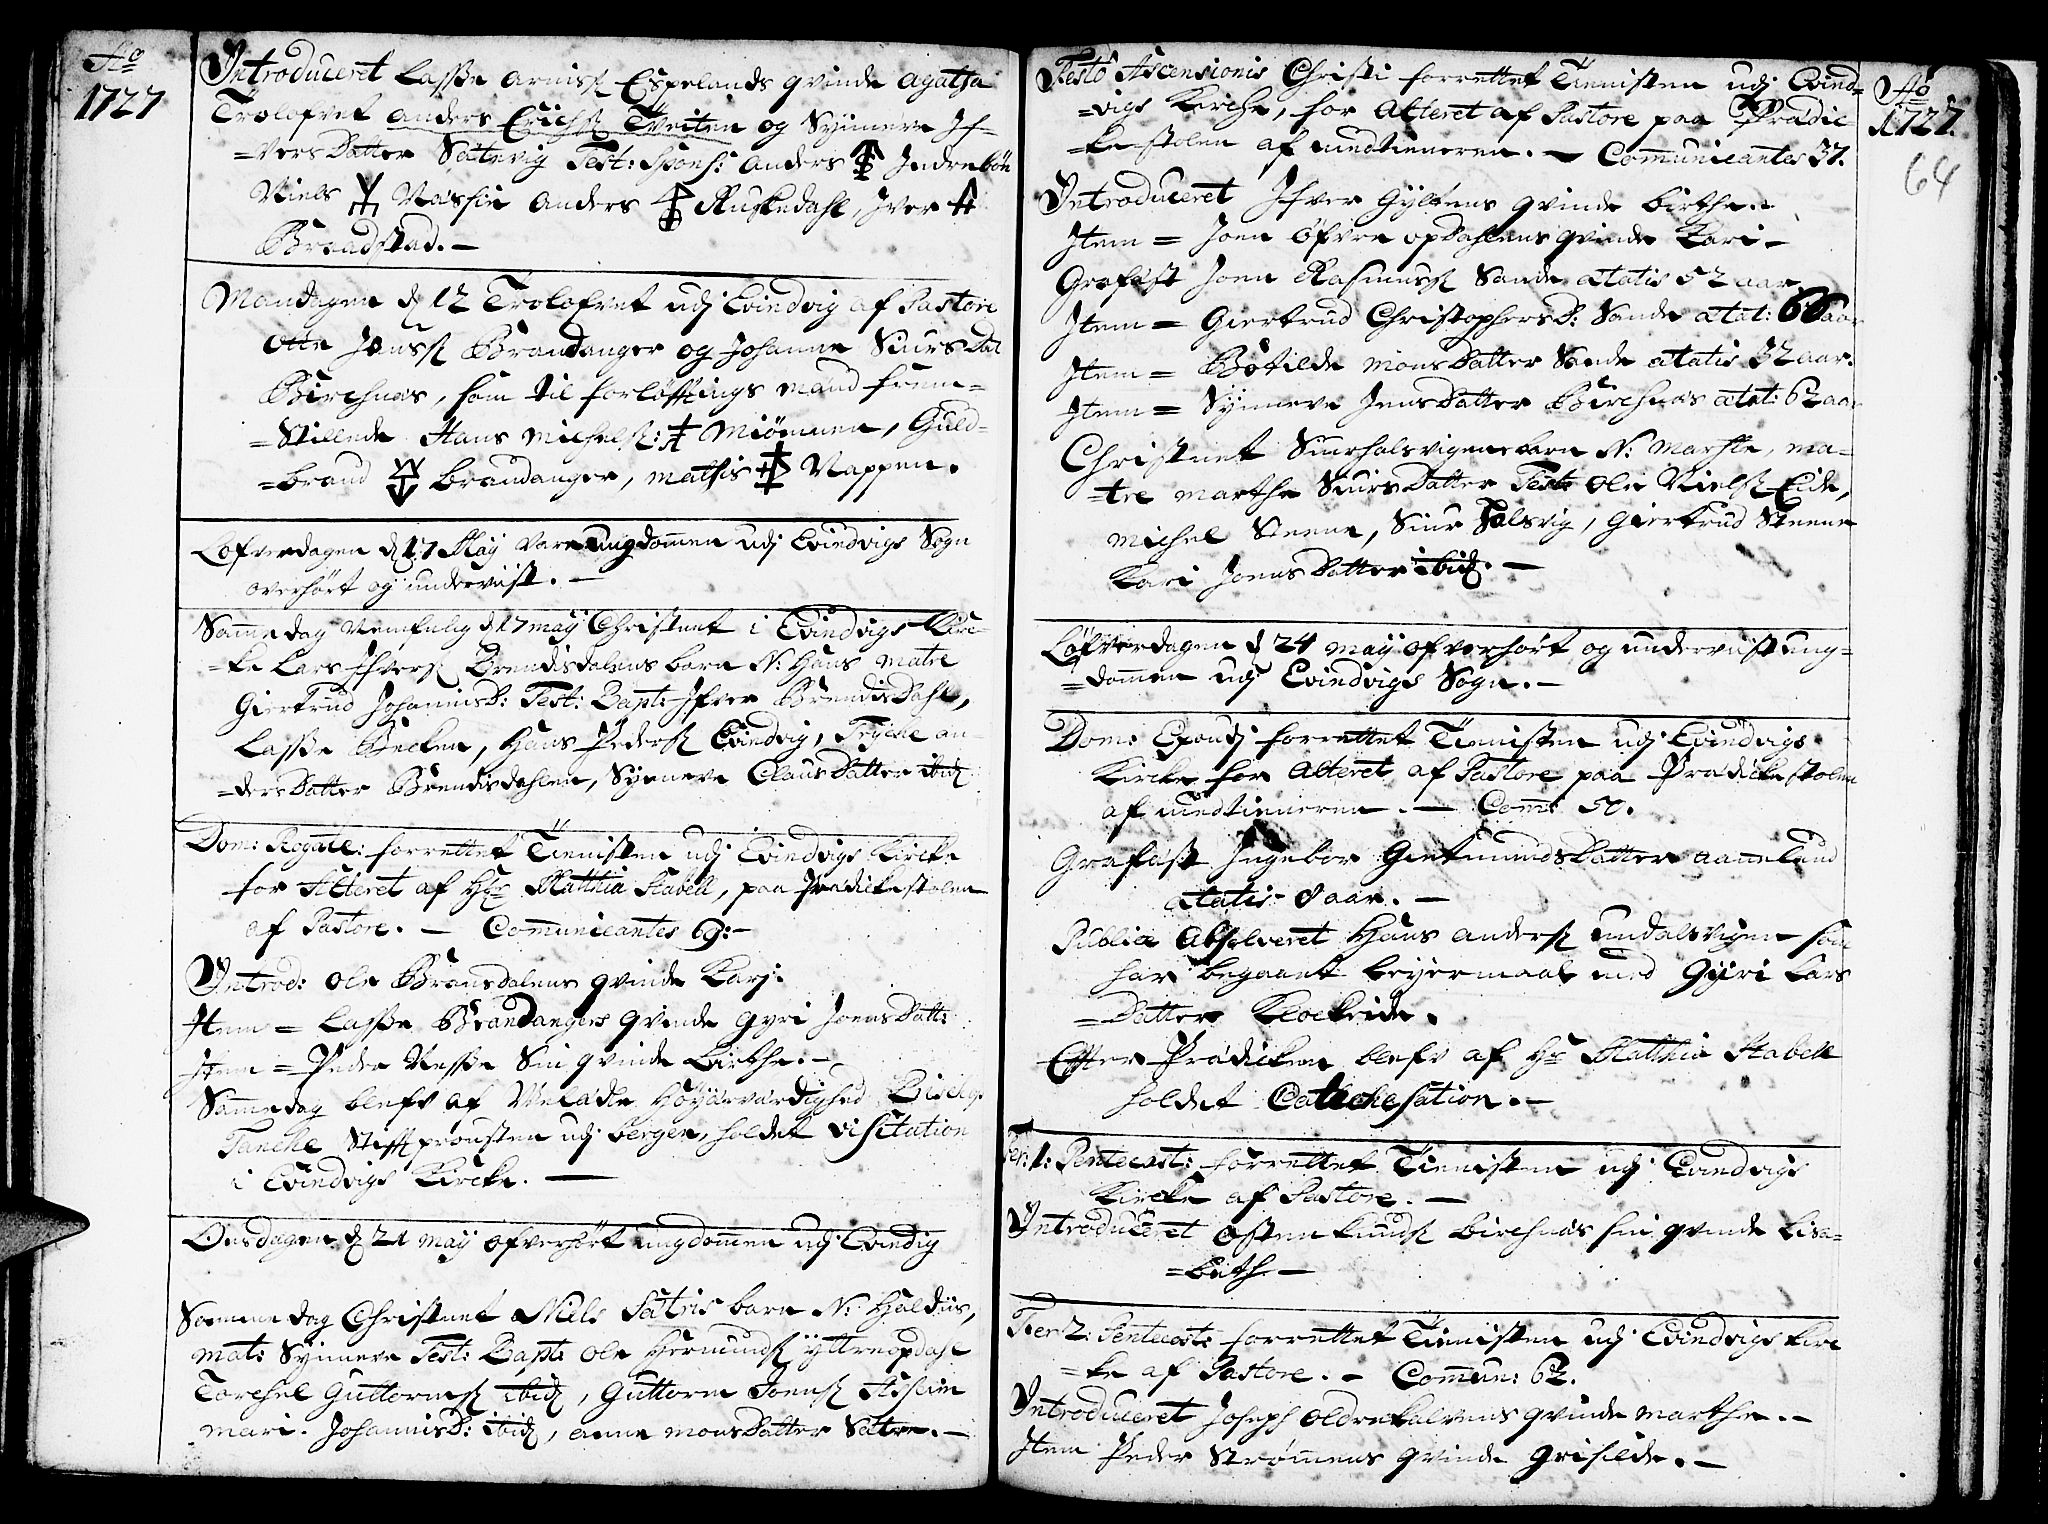 Aō
1727
Introduceret Lasse Arnisß Espelands qvinde Agatha
Trolofvet Anders Erichsß Tveiten og Synneve If-
=vers Datter Sætevig Test: Spons: Anders Indrebøe
Niels Anders Ruskedahl, Iver
Braadstad. -
Mandagen d 12 Trolofvet udj Evindvig af Pastore
Otte Jensß Brandanger og Johanne Siurs Dat
Birchnæs, som til forløftings mænd frem-
=stillede Hans Michelsß: Miømmen, Guld-
=brand Brandanger, Mathis Nappen.
Løfverdagen d 17 Maÿ vare ungdom̄en udj Evindvigs Sogn
overhørt og undervist. -
Sam̄e dag d 17 maÿ Christnet i Evindvigs Kirc-
-ke Lars Ifversß Brendisdalens barn N: Hans matre
Giertrud JohannisD: Test: Bapt: Ifver Brendisdahl,
Lasse Becken, Hans Pedersß Evindvig, Trÿche An-
=dersDatter Brendisdahlen, Sÿnneve ClausDatter ibid
Dom: Rogate: forrettet Tienisten udj Evindvigs Kircke
for Alteret af Hr Matthia Stabell, paa Prædickestolen
af Pastore. - Communicantes 69:-
Introd: Ole Bransdalens qvinde Karj:
Item = Lasse Brandangers qvinde Gyri JoensDatt:
Item = Peder Nesse Sin qvinde Birthe. -
Sam̄e dag blefv af Velædle Høyærværdighed Bischop
Tanche Stiftprousten udj Bergen, holdet visitation
i Evindvigs Kircke. -
Onsdagen d 21 maÿ ofverhørt ungdom̄en udj Evindig
Sam̄me dag Christnet Niels Sætris barn N: Haldus,
mat: Synneve Test: Bapt: Ole Hermundsß ÿttreopdahl
Torchel Guttormsß ibid, Guttorm Joensß Asheim
mari. JohannisD: ibid, Anne MonsDatter Sætre. -
Festo Ascensionis Christi forrettet Tienisten udj Evind-
=vigs Kirche, for Alteret af Pastore paa Prædic-
=kestolen af medtieneren. - Com̄unicantes 37.
Introduceret Ifver Gÿltens qvinde Birthe. -
Item = Joen øfvre opdahlens qvinde Kari -
Grafæst Joen Rasmusß Sande ætatis 52 aar
Item = Giertrud ChristophersD: Sande ætat: 66 aar
Item = Bøtilde MonsDatter Sande ætatis 32 aar.
Item = Synneve JensDatter Birchnæs ætat: 62 aar
Christnet Siur halsvigens barn N: Marthe, ma-
=tre Marthe SiursDatter Test: Ole Nielsß Eide,
Michel Steene, Siur Halsvig, Giertrud Steene
Kari JoensDatter ibid. -
Løfverdagen d 24 maÿ ofverhørt og underviist ung-
=dom̄en udj Evindvigs Sogn. -
Dom: Exoudj forrettet Tienisten udj Evindvigs
Kircke for Alteret af Pastore paa Prædickestolen
af medtieneren. - Com̄: 50.
Grafæst Ingebor GietmundsDatter aaneland
ætatis 8 aar. -
Publice Absolveret Hans Andersß Undalsvigen som
har begaaet leyermaal med Gÿri Lars
=Datter Klockeide.
Efter Prædicken blefv af Hr Matthia Stabell
holdet Catechesation. -
Fer: 1: Pentecost: forrettet Tienisten udj Evindvigs
Kircke af Pastore. -
Introduceret Østen Knudsß Birchnæs sin qvinde Lisa-
=beth -
Fer 2: Pentecost: forrettet Tienisten udj Evindvigs Kirc
=ke af Pastore. - Com̄mun: 62.
Introduceret Joseph Oldrekalvens qvinde Marthe. -
Item Peder Strøm̄ens qvinde Grisilde. -
Aō
1727.
64